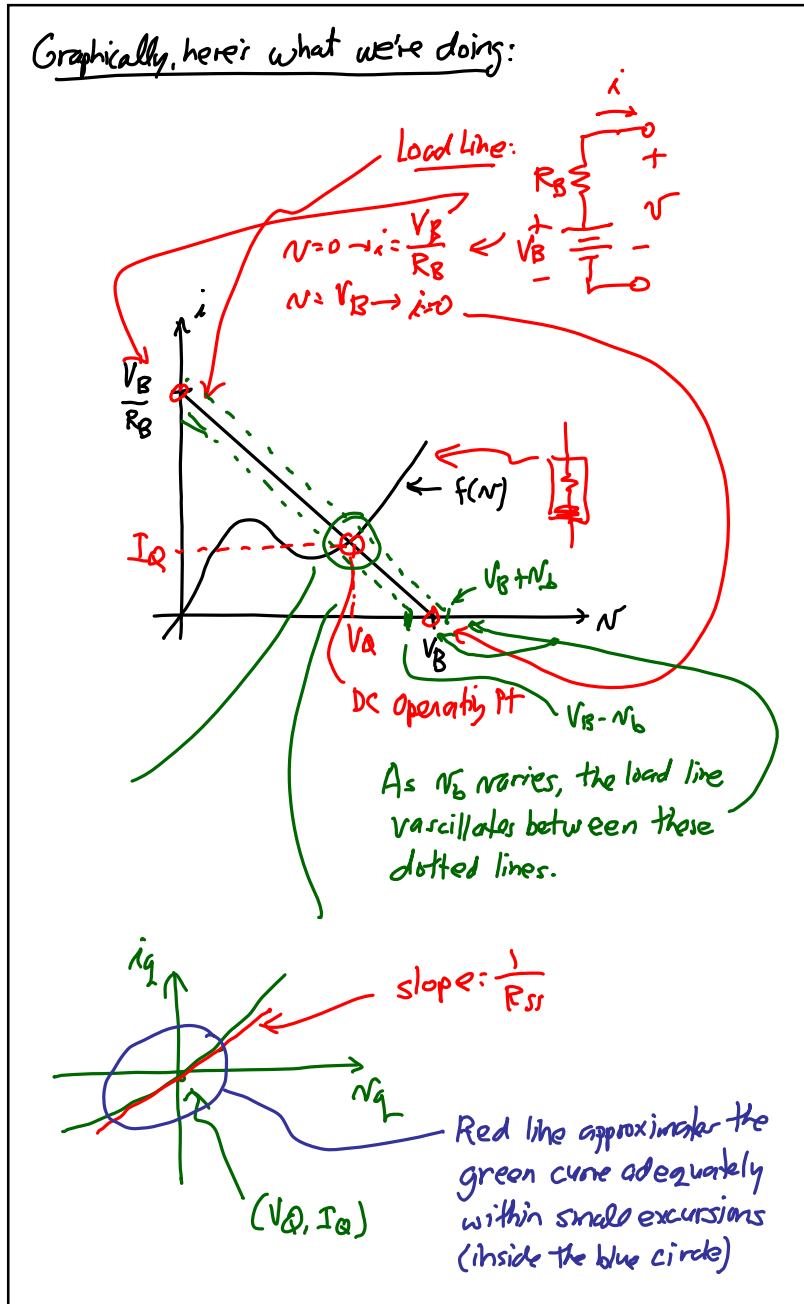 Graphically, here's what we're doing:
i
Load Line:
R_B
+
v
-
v=0 → i = V_B/R_B
+
V_B
-
v = V_B → i=0
i
V_B/R_B
f(v)
I_Q
V_B+v_b
v
V_Q
V_B
DC Operating Pt
V_B-v_b
As v_b varies, the load line
vascillates between these
dotted lines.
i_q
slope = 1/R_ss
v_q
(V_Q, I_Q)
Red line approximates the
green curve adequately
within small excursions
(inside the blue circle)